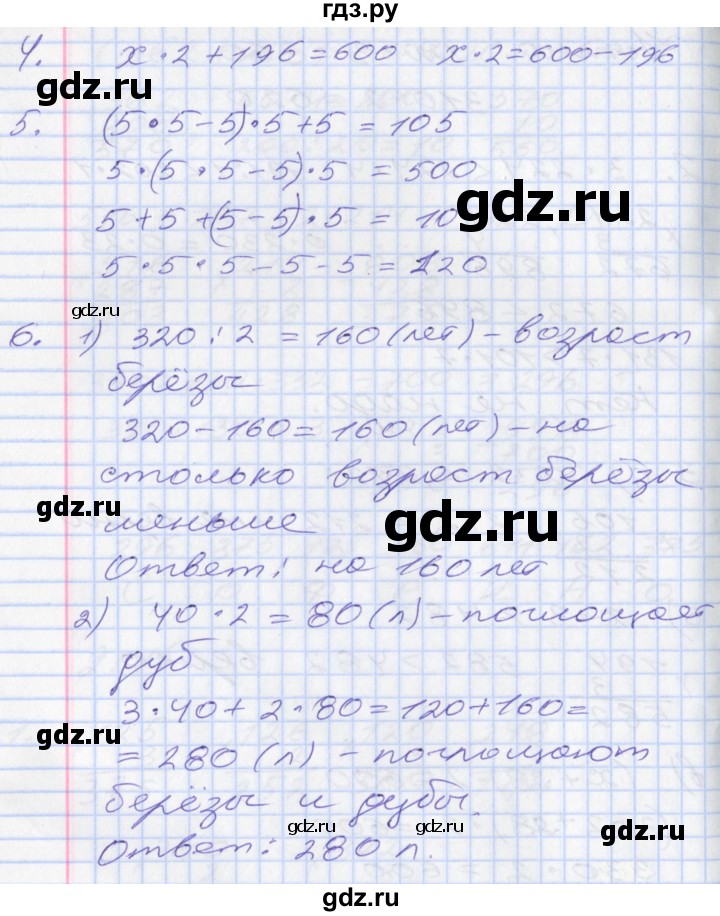 гдз.ру
4. x·2+196=600 x·2=600-196
5. (5·5-5)·5+5=105
5·(5·5-5)·5=500
gdz.ru gdz.ru
5+5+(5-5)·5=10
5·5·5-5-5=120
gdz.ru
6. 1) 320:2=160(лет)-возраст
берёзы
320-160=160(лет)-на
столько возраст берёзы
gdz.ru gdz.ru
меньше
Ответ: на 160 лет
2) 40·2=80(л)-поглощает
дуб
3·40+2·80=120+160=
gdz.ru
=280(л)-поглощают
берёзы и дубы.
gdz.ru gdz.ru gdz.ru
Ответ: 280 л.
гдз.ру